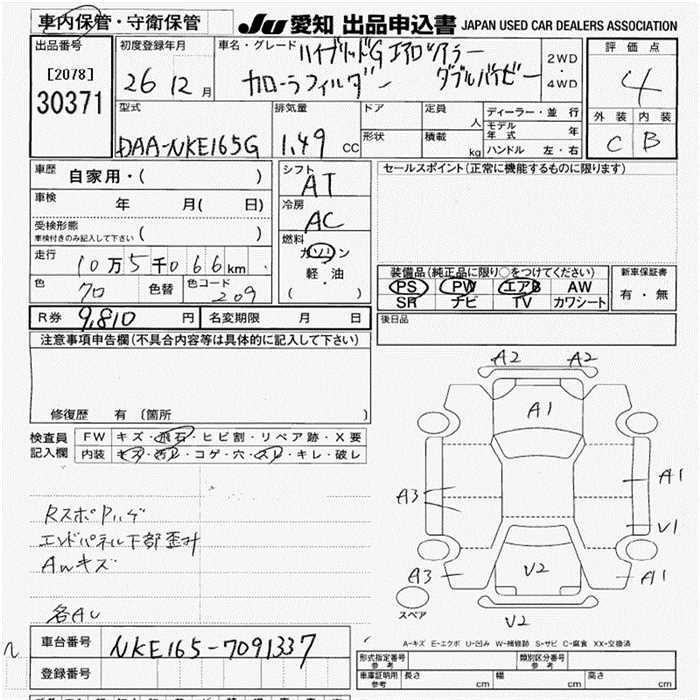 車内保管・守衛保管
JU 愛知 出品申込書 JAPAN USED CAR DEALERS ASSOCIATION
出品番号
[2078]
30371
初度登録年月
26 12 月
車名・グレード ハイブリッドG エアロツアラー
カローラフィルダー ダブルバイビー
2WD
・
4WD
評価点
4
外装 内装
C B
型式
DAA-NKE165G
排気量
1.49 CC
ドア
形状
定員
人
積載
kg
ディーラー・並行
モデル年式 年
ハンドル 左・右
車歴
自家用・( )
車検
年 月( 日)
受検形態
車検付きのみ記入して下さい ( )
走行
10万5千066km
色
70
色替
色コード
209
シフト
AT
冷房
AC
燃料
ガソリン
軽・油
( )
セールスポイント(正常に機能するものに限ります)
装備品(純正品に限り○をつけてください)
PS PW エアB AW
SR ナビ TV カワシート
新車保証書
有・無
R券 9,810 円 名変期限 月 日
後日品
注意事項申告欄(不具合内容等は具体的に記入して下さい)
修復歴 有 (箇所 )
検査員
記入欄
FW キズ・飛石・ヒビ割・リペア跡・X要
内装 キズ・汚レ・コゲ・穴・スレ・キレ・破レ
RスポPハゲ
エンドパネル下部歪ミ
Awキズ
各AU
A2 A2
A1
A3
A1
V1
A3
V2
A1
V2
スペア
A-キズ E-エクボ U-凹み W-補修跡 S-サビ C-腐食 XX-交換済
車台番号 NKE165-7091337
登録番号
形式指定番号
参考
類別区分番号
参考
車庫証明用
参考
長さ cm 幅 cm 高さ cm